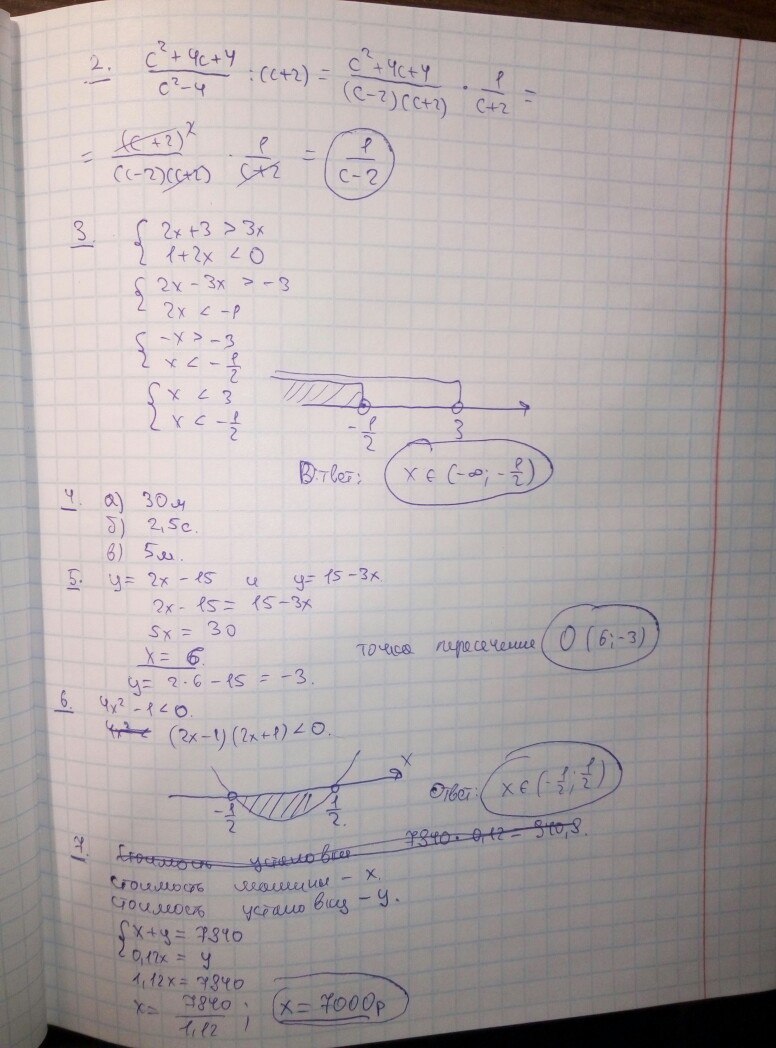 2. (c²+4c+4)/(c²-4) : (c+2) = (c²+4c+4)/((c-2)(c+2)) · 1/(c+2) =
= (c+2)²/((c-2)(c+2)) · 1/(c+2) = 1/(c-2)
3. { 2x+3 > 3x
1+2x < 0
{ 2x - 3x > -3
2x < -1
{ -x > -3
x < -1/2
{ x < 3
x < -1/2
-1/2 3
Ответ: x ∈ (-∞; -1/2)
4. а) 30м
б) 2,5с.
в) 5м.
5. y = 2x - 15 и y = 15-3x
2x - 15 = 15-3x
5x = 30
x = 6.
точка пересечение O (6;-3)
y = 2·6 - 15 = -3.
6. 4x² - 1 < 0.
4x² < (2x-1)(2x+1) < 0.
x
-1/2 1/2.
Ответ: x ∈ (-1/2; 1/2)
7. Стоимость установки 7840 · 0,12 = 940,8.
стоимость машины - x.
стоимость установки - y.
{ x+y = 7840
0,12x = y
1,12x = 7840
x = 7840/1,12 ; x = 7000р